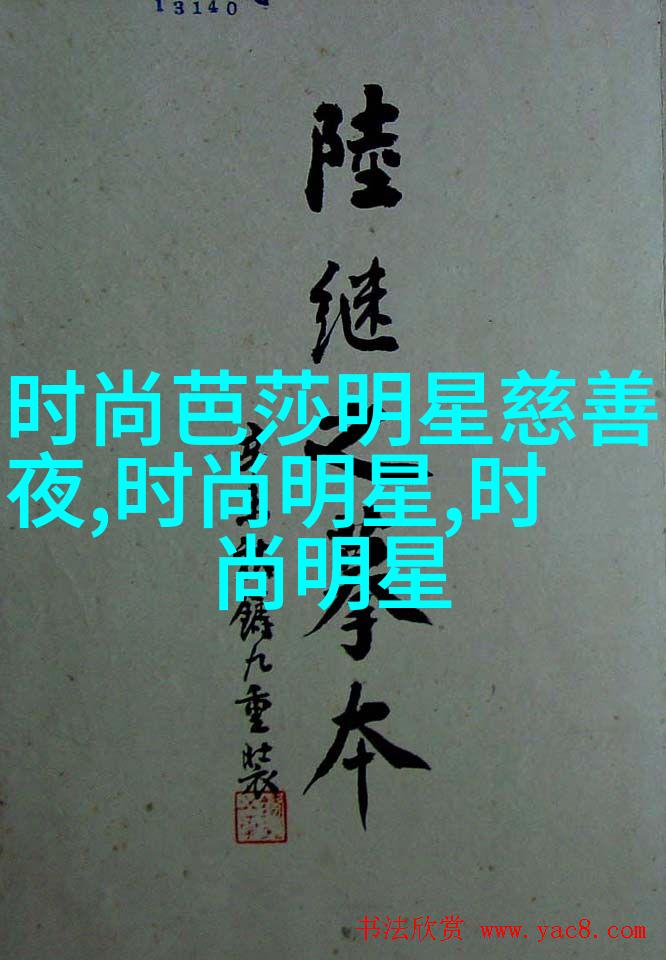 13140
陸继之摹本
九重裝
时尚芭莎明星慈善
夜,时尚明星,时
尚明星
书法欣赏 www.yac8.com